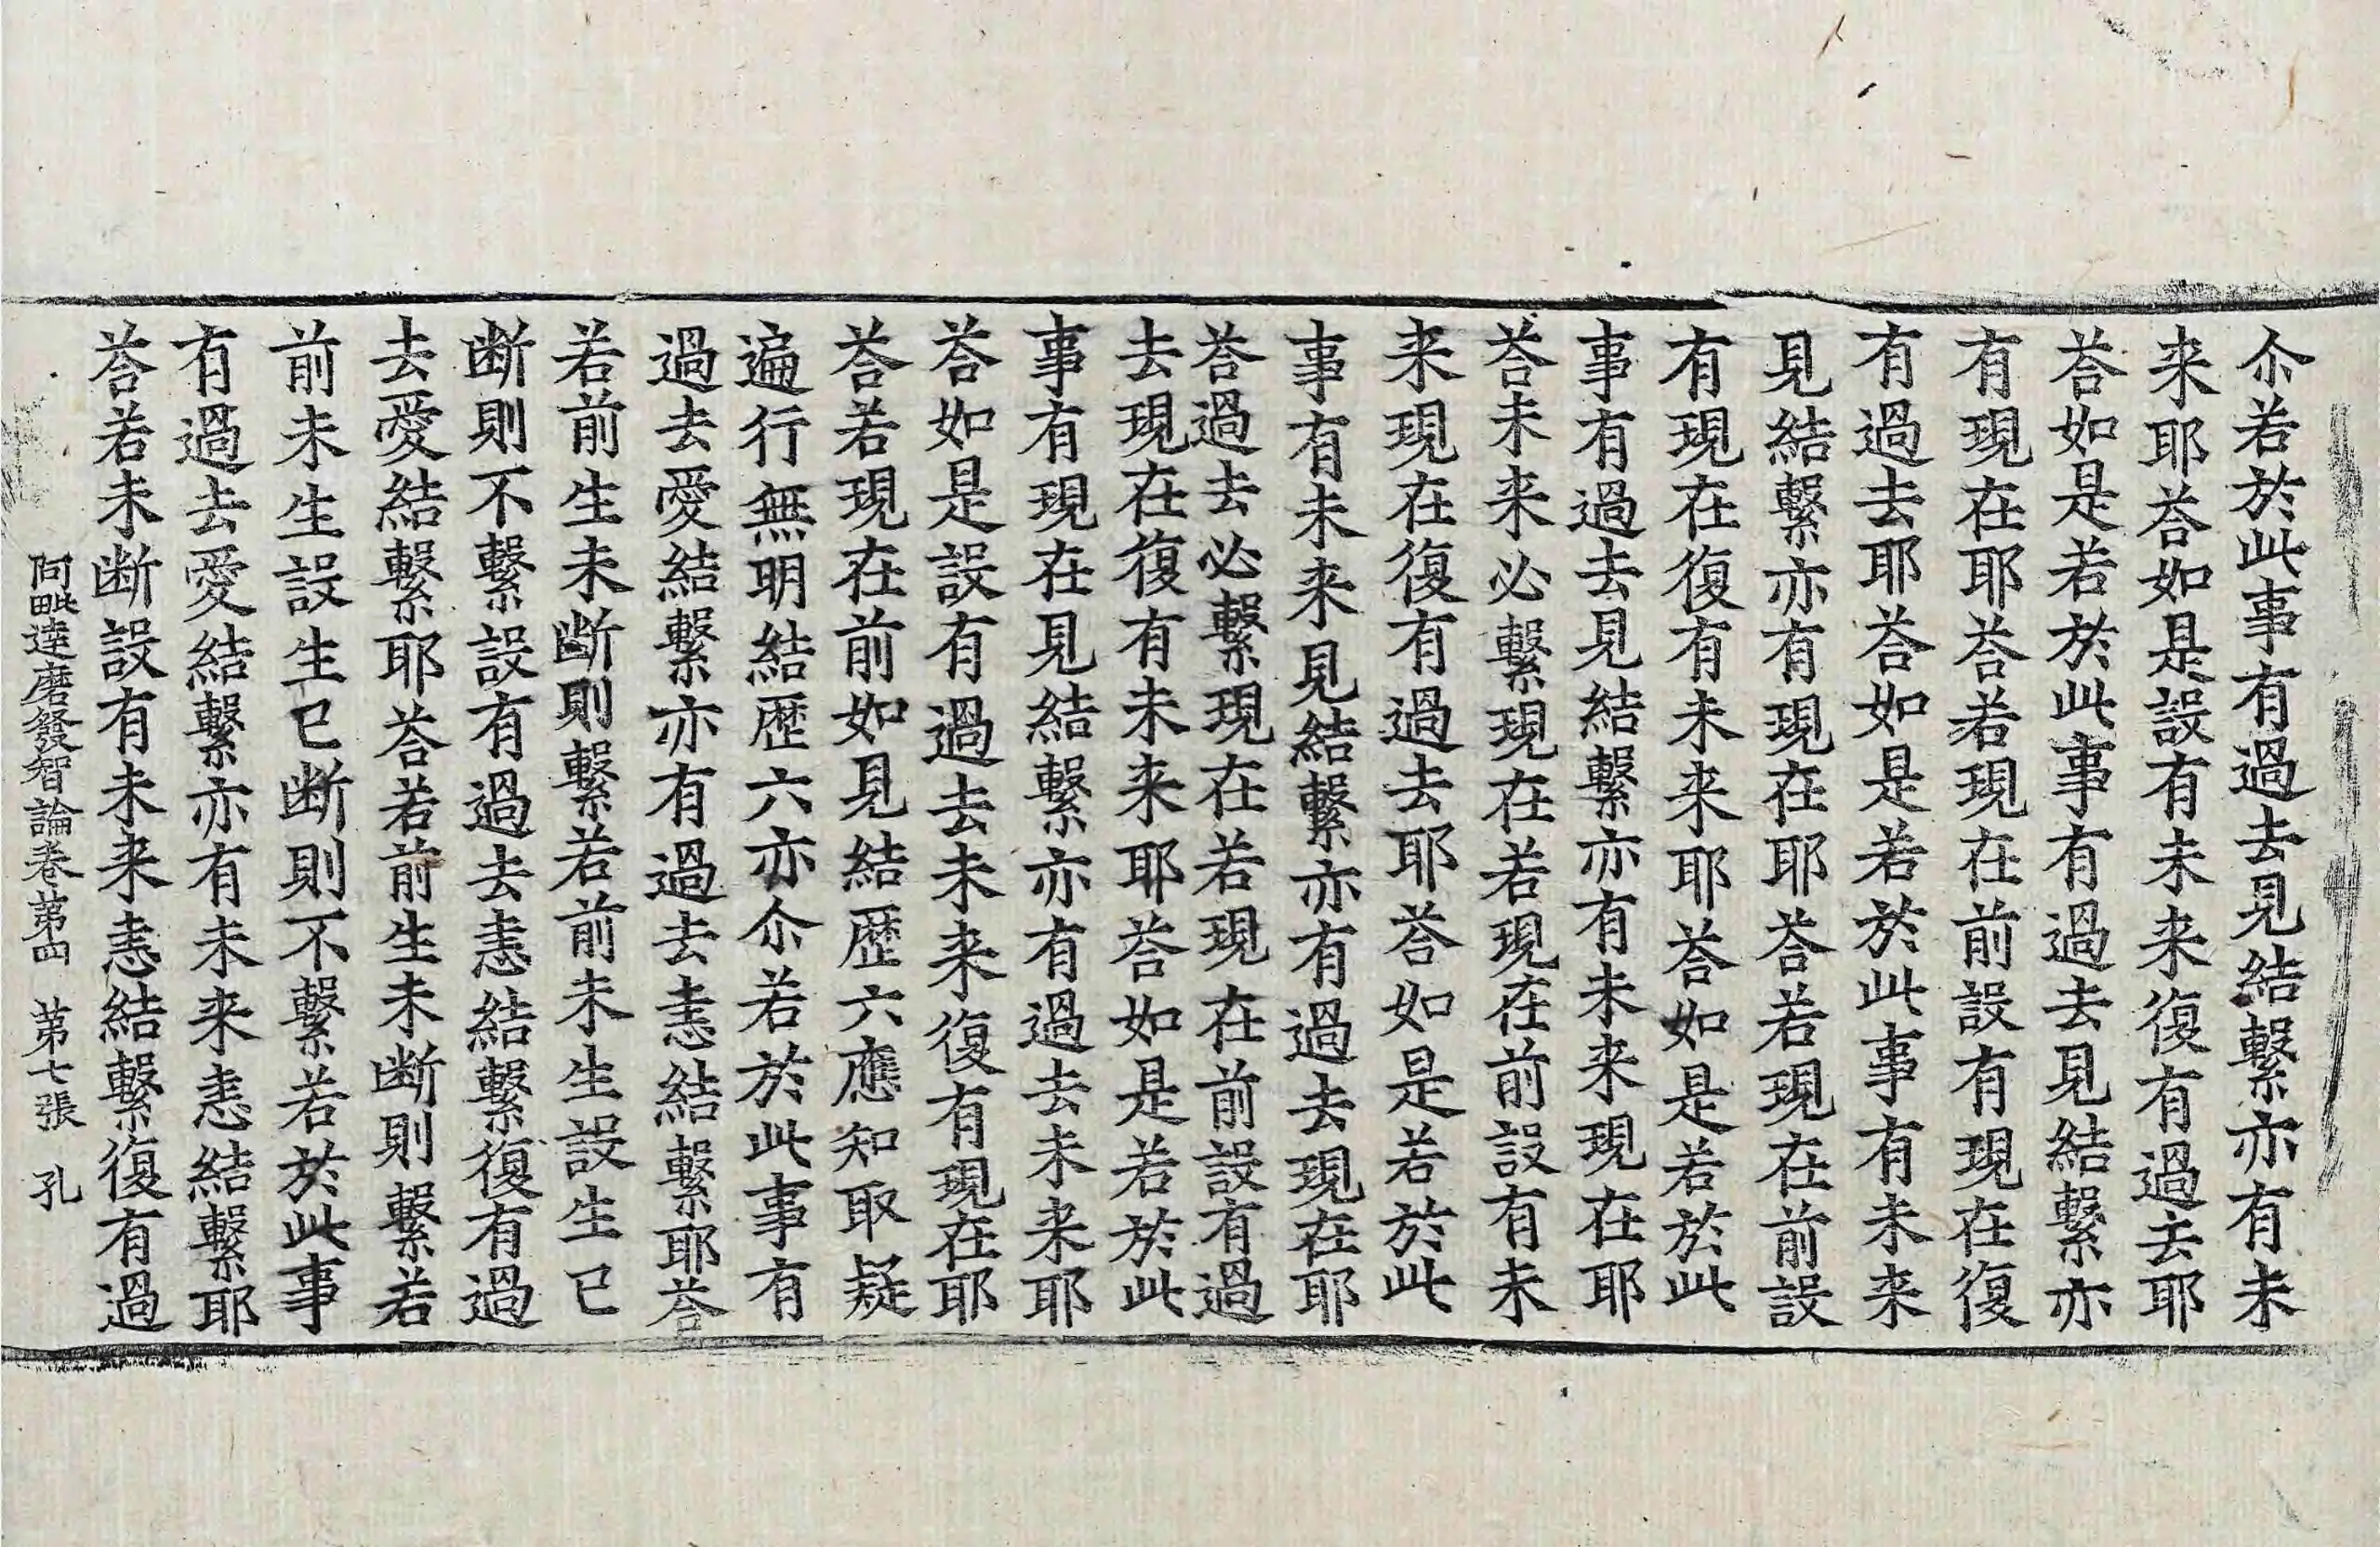 尒若於此事有過去見結繫亦有未
来耶荅如是設有未来復有過去耶
荅如是若於此事有過去見結繫亦
有現在耶荅若現在前設有現在復
有過去耶荅如是若於此事有未来
見結繫亦有現在耶荅若現在前設
有現在復有未来耶荅如是若於此
事有過去見結繫亦有未来現在耶
荅未来必繫現在若現在前設有未
来現在復有過去耶荅如是若於此
事有未来見結繫亦有過去現在耶
荅過去必繫現在若現在前設有過
去現在復有未来耶荅如是若於此
事有現在見結繫亦有過去未来耶
荅如是設有過去未来復有現在耶
荅若現在前如見結歷六應知取疑
遍行無明結歷六亦尒若於此事有
過去愛結繫亦有過去恚結繫耶荅
若前生未断則繫若前未生設生已
断則不繫設有過去恚結繫復有過
去愛結繫耶荅若前生未断則繫若
前未生設生已断則不繫若於此事
有過去愛結繫亦有未来恚結繫耶
荅若未断設有未来恚結繫復有過
阿毗達磨發智論卷第四 第七張 孔